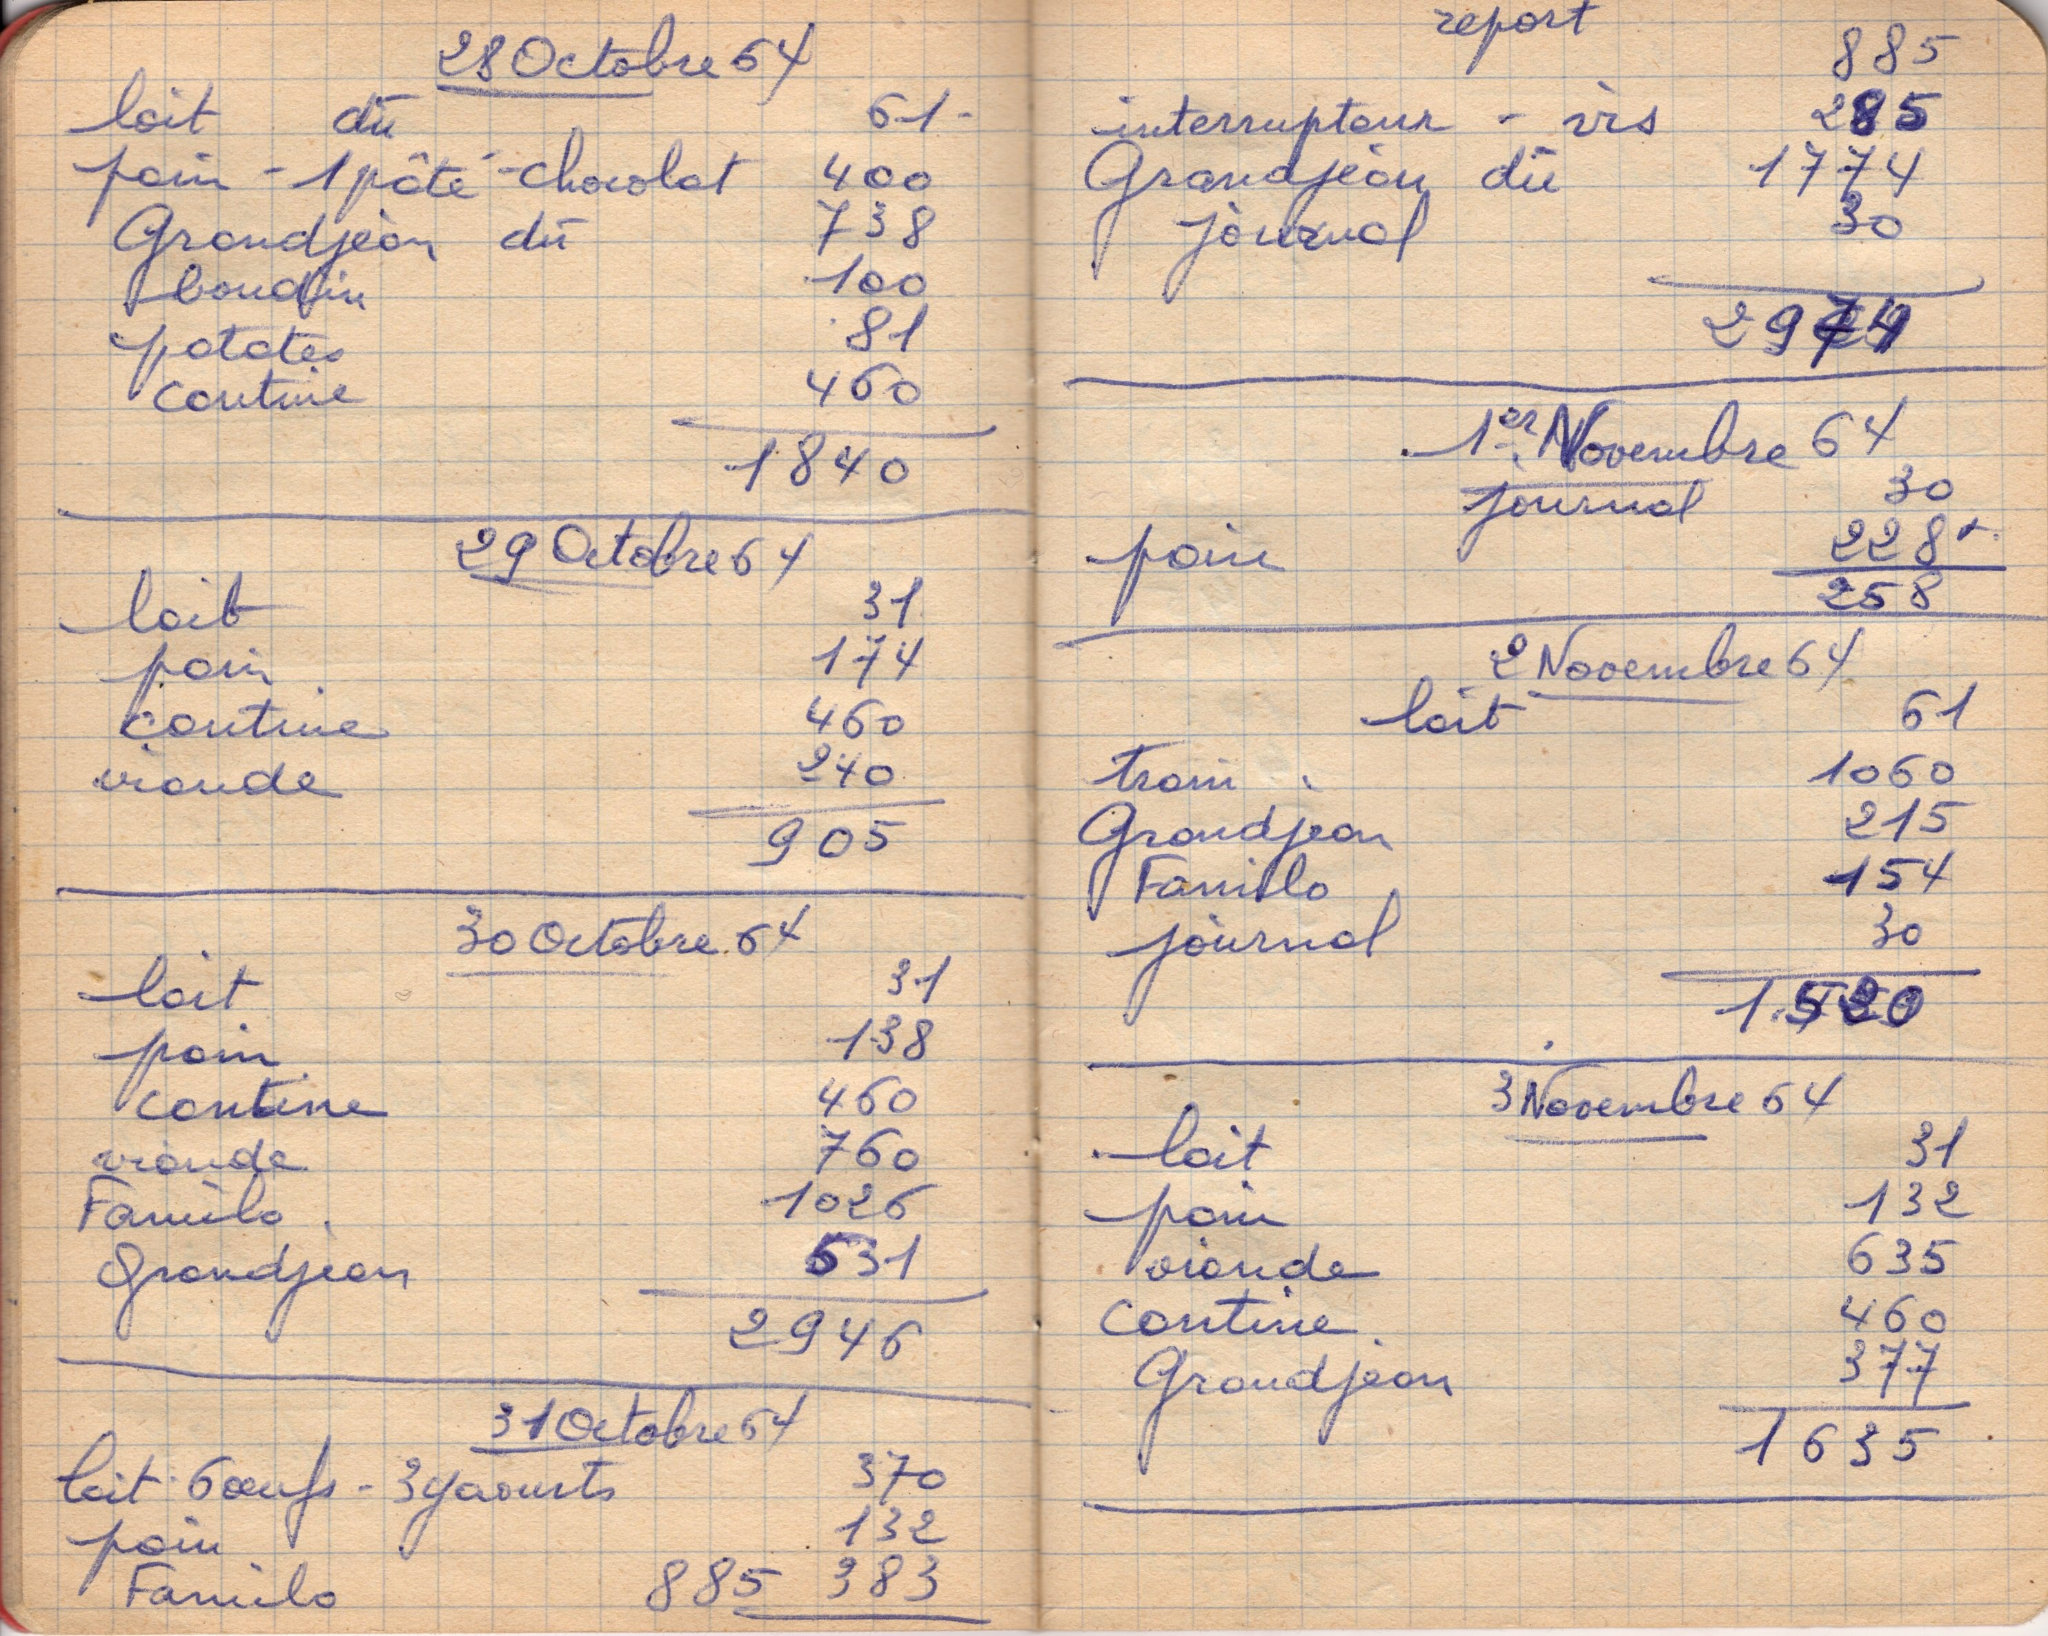 28 Octobre 64
lait dû 61-
pain - 1 pâté - chocolat 400
Grandjean dû 738
boudin 100
patates 81
cantine 460
1840
29 Octobre 64
lait 31
pain 174
cantine 460
viande 240
905
30 Octobre 64
lait 31
pain 138
cantine 460
viande 760
Familo 1026
Grandjean 531
2946
31 Octobre 64
lait - 6 oeufs - 3 yaourts 370
pain 132
Familo 885 383
report
885
interrupteur - vis 285
Grandjean dû 1774
journal 30
2974
1er Novembre 64
journal 30
pain 228
258
2 Novembre 64
lait 61
train 1060
Grandjean 215
Familo 154
journal 30
1520
3 Novembre 64
lait 31
pain 132
viande 635
cantine 460
Grandjean 377
1635